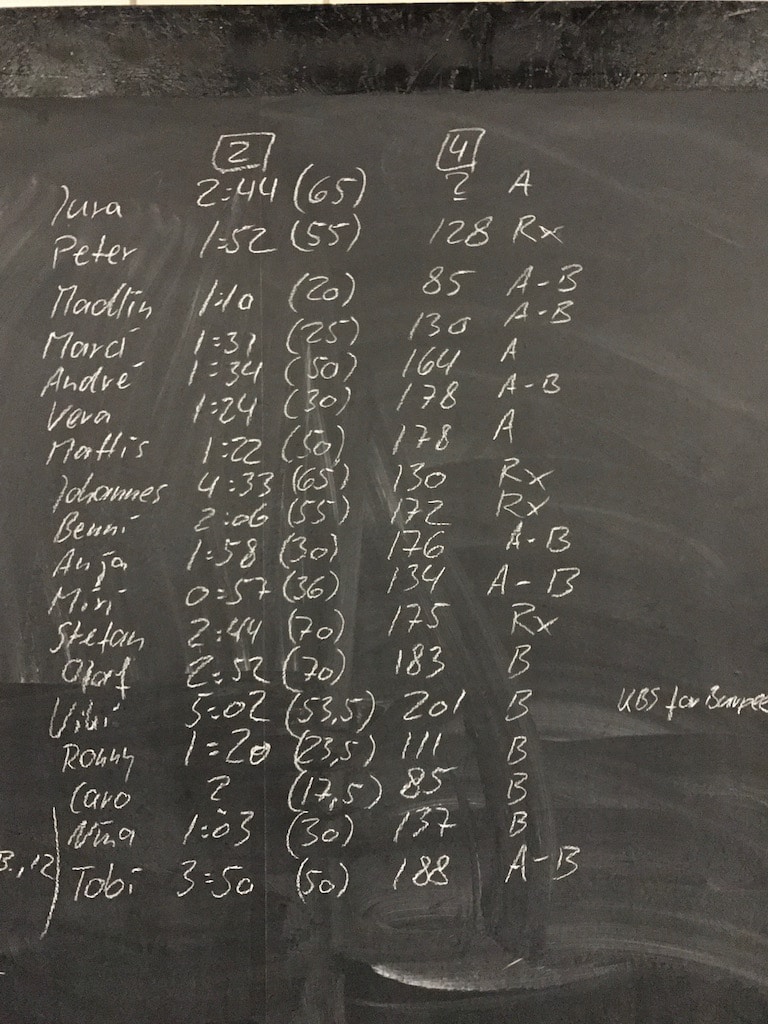 2 4
Jura 2:44 (65) ? A
Peter 1:52 (55) 128 Rx
Madlin 1:10 (20) 85 A-B
Marci 1:31 (25) 130 A-B
André 1:34 (50) 164 A
Vera 1:24 (30) 178 A-B
Mattis 1:22 (50) 178 A
Johannes 4:33 (65) 130 Rx
Benni 2:06 (55) 172 Rx
Anja 1:58 (30) 176 A-B
Miri 0:57 (36) 134 A-B
Stefan 2:44 (70) 175 Rx
Olaf 2:52 (70) 183 B
Vibi 5:02 (53,5) 201 B KBS for Burpee
Ronny 1:20 (23,5) 111 B
Caro ? (17,5) 85 B
Nina 1:03 (30) 137 B
B., 12 Tobi 3:50 (50) 188 A-B